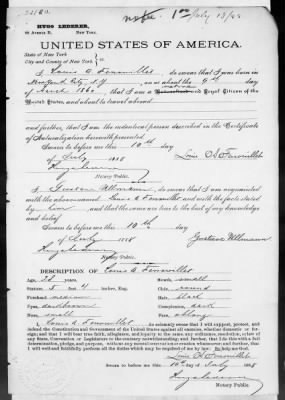 HUGO LEDERER,
66 AVENUE B, NEW YORK.
July 13/88
UNITED STATES OF AMERICA.
State of New York
City and County of New York
I Louis A do swear that I was born in
New York City N.Y. on or about the 9th day
of 1860 that I am a native and Loyal Citizen of the
United States, and about to travel abroad
and further, that I am the identical person described in the Certificate
of Naturalization herewith presented.
Sworn to before me this 10th day
of July 1888
Notary Public.
I Gustave Ullmann, do swear that I am acquainted
with the above-named Louis A and with the facts stated
by him and that the same are true to the best of my knowledge
and belief
Sworn to before me this 10th day
of July 1888
Gustave Ullmann
Notary Public.
DESCRIPTION OF Louis A
Age, 28 years, Mouth, small
Stature, 5 feet 4 inches, Eng. Chin, round
Forehead medium Hair, black
Eyes, dark brown Complexion, dark
Nose, small Face, oblong
I, Louis A do solemnly swear that I will support, protect, and
defend the Constitution and Government of the United States against all enemies, whether domestic or foreign;
and that I will bear true faith, allegiance, and loyalty to the same, any ordinance, resolution, or law of
any State, Convention or Legislature to the contrary notwithstanding; and further, that I do this with a full
determination, pledge, and purpose, without any mental reservation or evasion whatsoever; and further, that
I will well and faithfully perform all the duties which may be required of me by law. So help me God.
Sworn to before me this 10th July 1888
Notary Public.